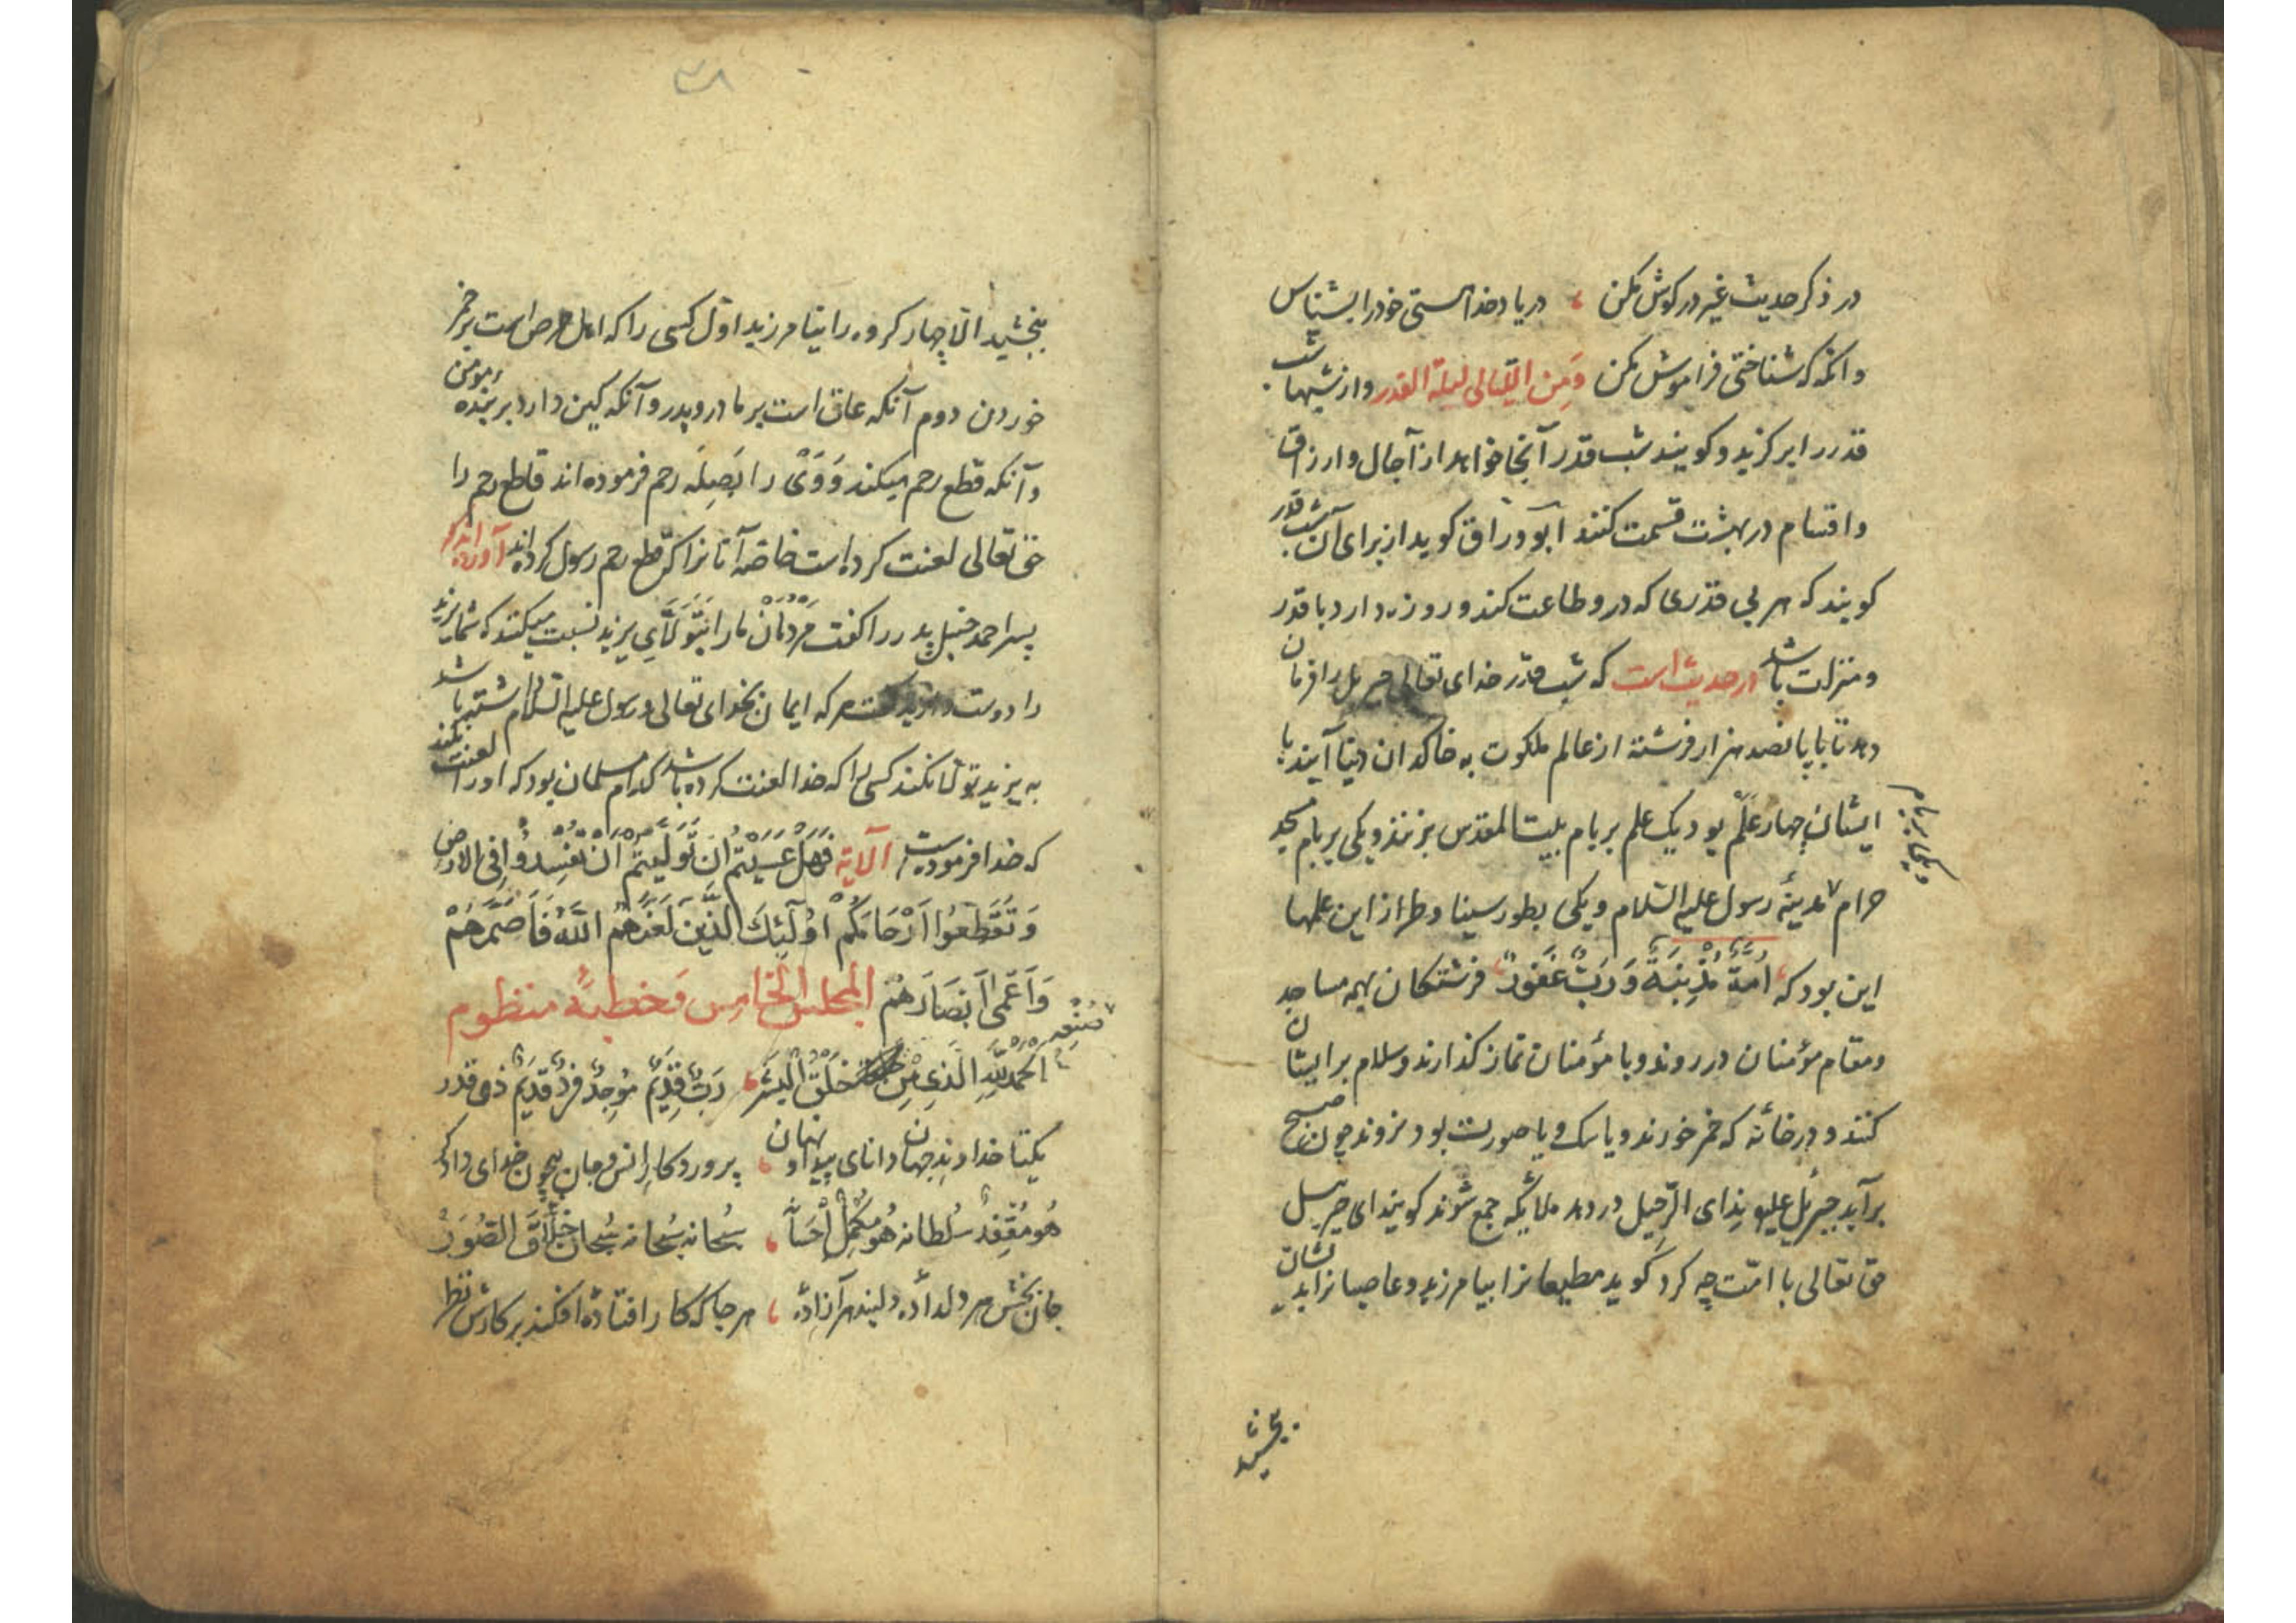 در ذکر حدیث غیر در کوش مکن ، در یاد خدا هستی خود را بشناس
وانکه که شناختی فراموش مکن وَمِن اللّیالی لیلة القدر وازشبها شب
قدر را برکزید و کویند شب قدر آنجا خواهد از آجال و ارزاق
واقسام در بهشت قسمت کنند ابو ورّاق کوید از برای آن شب قدر
کویند که هر بی قدری که در و طاعت کند و روزه دارد با قدر
ومنزلت باشد در حدیث است که شب قدر خدای تعالی جبریل را فرمان
دهد تا با پانصد هزار فرشته از عالم ملکوت به خاکدان دنیا آیند با
ایشان چهار عَلَم بود یک علم بر بام بیت المقدس بزنند و یکی بر بام مسجد
حرام مدینهٔ رسول علیه السّلام ویکی بطور سینا وطراز این علمها
این بود که اُمَّةٌ مُذْنِبَةٌ وَرَبٌّ غَفُورٌ فرشتکان بهمه مساجد
ومقام مؤمنان در روند و با مؤمنان نماز کذارند و سلام بر ایشان
کنند و در خانهٔ که خمر خورند و یا سک و یا صورت بود نروند چون صبح
برآید جبرئیل علیه ندای الرّحیل در دهد ملایکه جمع شوند کویند ای جبریل
حق تعالی با امّت چه کرد کوید مطیعانرا بیامرزید و عاصیانرا بدیشان
بخشید
۳۸
بخشید الّا چهار کروه را نیامرزید اوّل کسی را که اهل حرص است بر خمر
خوردن دوم آنکه عاق است بر مادر و پدر و آنکه کین دارد بر بنده مؤمن
وآنکه قطع رحم میکند وَوَی را بَصِلَه رحم فرموده اند قاطع رحم را
حق تعالی لعنت کرده است خاصّه آنانرا که قطع رحم رسول کرده اند آورده اند که
پسر احمد حنبل پدر را کفت مَردُمان ما را بَتَوَلّای یزید نسبت میکنند که شما یزید
را دوست دارید کفت هر که ایمان بخدای تعالی و رسول علیه السّلام داشته باشد
به یزید تولّا نکند کسی را که خدا لعنت کرده باشد کدام مسلمان بود که او را لعنت نکند
که خدا فرموده است الآیة فَهَلْ عَسَیْتُمْ اِنْ تَوَلَّیْتُمْ اَنْ تُفْسِدُوا فِی الارض
وَتُقَطِّعُوا اَرْحَامَکُمْ اُولٰئِكَ الَّذِینَ لَعَنَهُمُ اللّٰهُ فَاَصَمَّهُمْ
وَاَعْمٰی اَبْصَارَهُمْ المجلس الخامس فخطبةٌ منظوم
اَلحمدُ لِلّٰهِ الَّذِی مِنْ خَلَقَ الْبَشَر ، رَبٌّ قَدِیمٌ مُوجِدٌ فَرْدٌ قَدِیمٌ ذی قدر
یکتا خداوند جهان دانای پیدا و نهان ، پروردکار انس و جان بیچون خدای دادکر
هُو سُلطانه هُو مُکمِلٌ ، سُبحانه سُبحانه سُبحان خَلَّاق الصُّوَر
جان بخش هر دلداده دلبند هر آزاده ، هر جا که کار افتاده افکند بر کارش نظر